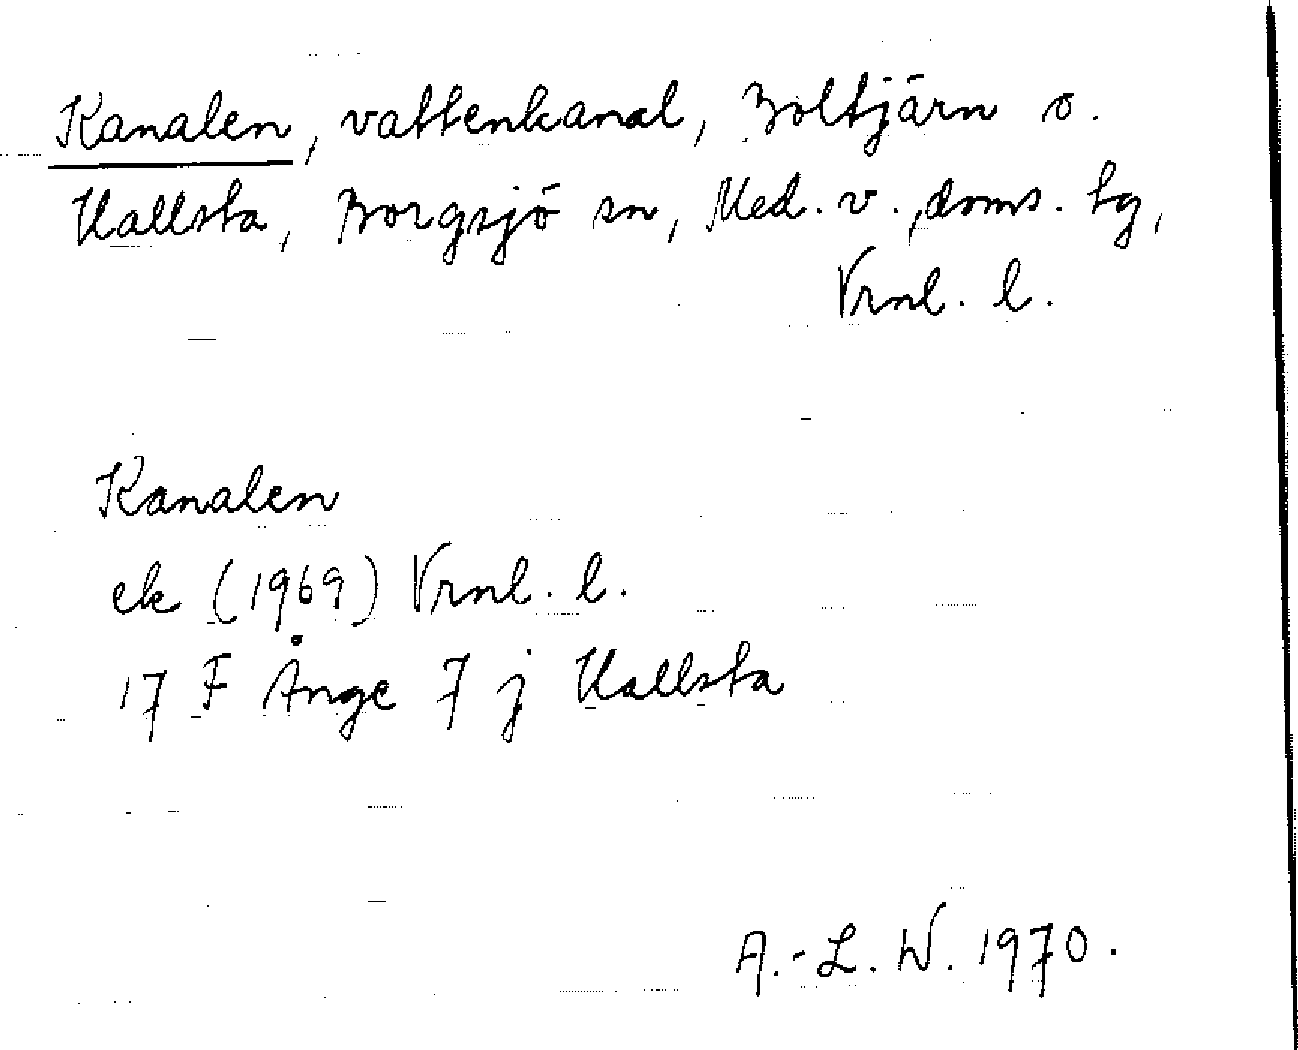 Kanalen, vattenkanal, Boltjärn o.
Hallsta, Borgsjö sn, Med. v., doms. tg,
Vrnl. l.
Kanalen
ek (1969) Vrnl. l.
17 F Ånge 7 j Hallsta
A.-L. W. 1970.